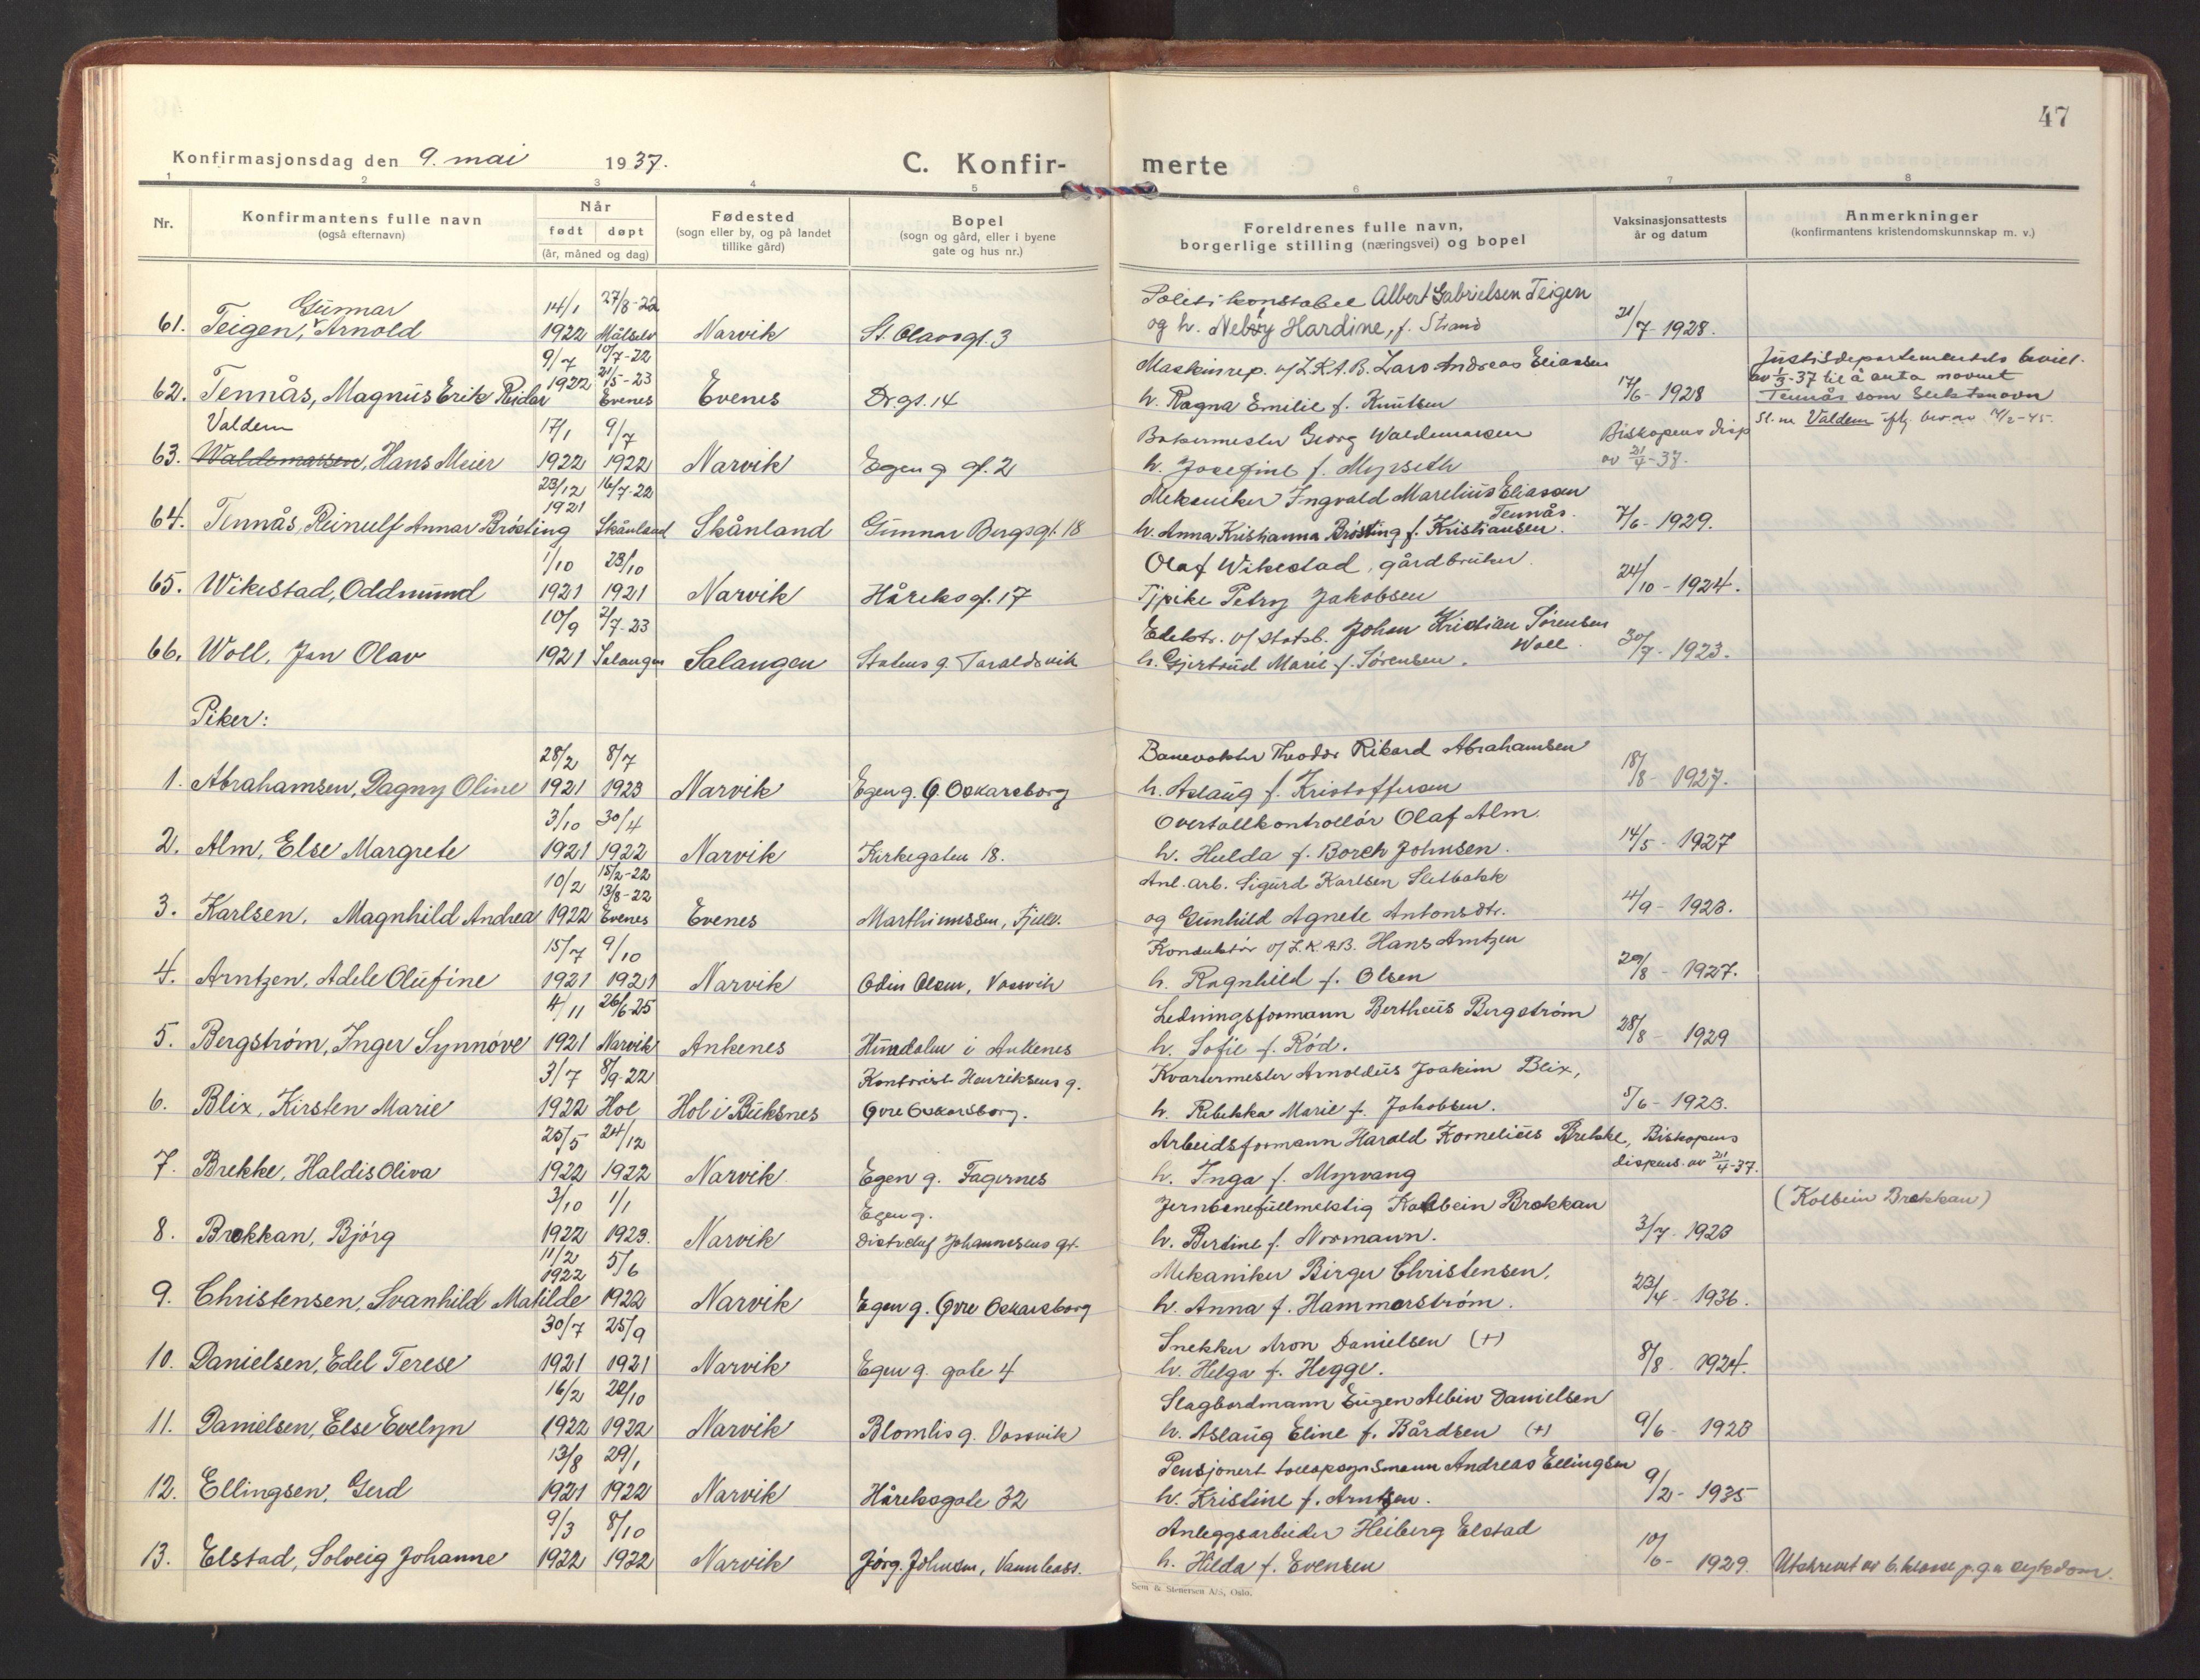 47
Konfirmasjonsdag den 9. mai 1937.
C. Konfir-
merte
1 2 3 4 5 6 7 8
Nr.
Konfirmantens fulle navn
(også efternavn)
Når
født døpt
(år, måned og dag)
Fødested
(sogn eller by, og på landet
tillike gård)
Bopel
(sogn og gård, eller i byene
gate og hus nr.)
Foreldrenes fulle navn,
borgerlige stilling (næringsvei) og bopel
Vaksinasjonsattests
år og datum
Anmerkninger
(konfirmantens kristendomskunnskap m. v.)
Gunnar 14/1 27/8-22 Politikonstabel Albert Gabrielsen Teigen
61. Teigen, Arnold 1922 Målselv Narvik St. Olavsgt. 3 og h. Hardine, f. Strand 21/7-1928.
9/7 10/7-22 Maskinrep. v/L.K.A.B. Lars Andreas Eliassen Justisdepartementets bevill.
21/5-23 av 1/3-37 til å anta navnet
62. Tennås, Magnus Erik Reidar 1922 Evenes Evenes Drgt. 14 h. Ragna Emilie f. Knutsen 17/6-1928 Tennås som slektsnavn
Valdem 17/1 9/7 Bakermester Georg Waldemarsen Biskopens disp Sl. n. Valdem
63. Waldemarsen, Hans Meier 1922 1922 Narvik Egen g gt. 2 h. Josefine f. Myrseth av 21/4-37.
23/12 16/7-22 Mekaniker Ingvald Marelius Eliassen
1921 Tennås.
64. Tennås, Reinulf Annar Brösting Skånland Skånland Gunnar Bergsgt. 18 h. Anna Kristianna Brösting f. Kristiansen. 7/6-1929.
1/10 23/10 Olaf Wikestad, gårdbruker.
65. Wikestad, Oddmund 1921 1921 Narvik Håreksgt. 17 Petry Jakobsen 24/10-1924.
10/9 2/7-23 v/ Statsb. Johan Kristian Sørensen
66. Woll, Jan Olav 1921 Salangen Salangen Statens g. Taraldsvik h. Gjertrud Marie f. Sørensen. Woll 30/7-1923.
Piker:
28/2 8/7 Banevokter Theodor Rikard Abrahamsen
1. Abrahamsen, Dagny Oline 1921 1923 Narvik Egen g. Ø. Oskarsborg h. Aslaug f. Kristoffersen 18/8-1927.
3/10 30/4 Overtollkontrollör Olaf Alm.
2. Alm, Else Margrete 1921 1922 Narvik Kirkegaten 18. h. Hulda f. Borch Johnsen. 14/5-1927
10/2 15/2-22 Anl. arb. Sigurd Karlsen Sletbakk
13/8-22
3. Karlsen, Magnhild Andrea 1922 Evenes Evenes Marthinussen, Fjellv. og Gunhild Agnete Antonsdtr. 14/9-1923.
15/7 9/10 Konduktör v/L.K.A.B. Hans Arntzen
4. Arntzen, Adele Olufine 1921 1921 Narvik Odin Olsen, Vassvik h. Ragnhild f. Olsen 29/8-1927.
4/11 26/6-25 Ledningsformann Bertheus Bergström
5. Bergström, Inger Synnöve 1921 Narvik Ankenes i Ankenes h. Sofie f. Röd. 28/8-1929
3/7 8/9-22 Kontorist Henriksens g. Kvartermester Arnoldus Joakim Blix,
6. Blix, Kirsten Marie 1922 Hol Hol i Buksnes Øvre Oskarsborg. h. Rebekka Marie f. Jakobsen. 5/6-1923.
25/5 24/12 Arbeidsformann Harald Kornelius Brekke, Biskopens
7. Brekke, Haldis Oliva 1922 1922 Narvik Egen g. Fagernes h. Inga f. Myrvang dispens. av 21/4-37.
3/10 1/1 Egen g. Jernbanefullmektig Kolbein Brekkan (Kolbein Brekkan)
8. Brekkan, Bjørg 1922 1923. Narvik Distrchef Johannesens gt. h. Bertine f. Normann. 3/7-1923
11/2 5/6 Mekaniker Birger Christensen,
1922
9. Christensen, Svanhild Matilde 1922 Narvik Egen g. Øvre Oskarsborg h. Anna f. Hammerström. 23/4-1936.
30/7 25/9 Snekker Aron Danielsen (+)
10. Danielsen, Edel Terese 1921 1921 Narvik Egen g. gate 4 h. Helga f. Hegge. 8/8-1924.
16/2 22/10 Slagbordmann Eugen Albin Danielsen
11. Danielsen, Else Evelyn 1922 1922 Narvik Blomlis g. Vassvik h. Aslaug Eline f. Bårdsen (+) 9/6-1923
13/8 29/1 Pensjonert tollopsynsmann Andreas Ellingsen
12. Ellingsen, Gerd 1921 1922 Narvik Håreksgate 32 h. Kristine f. Arntzen. 9/2-1935
9/3 8/10 Anleggsarbeider Heiberg Elstad
13. Elstad, Solveig Johanne 1922 1922 Narvik Jørg. Johnsen, Vannbass. h. Hilda f. Evensen 10/6-1929. Utskrevet av 6. klasse p. g. a sykdom.
Sem & Stenersen A/S, Oslo.